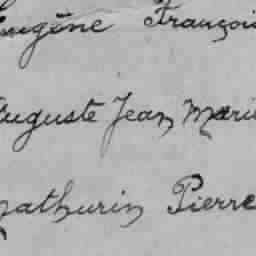 Eugène François
Auguste Jean Marie
Mathurin Pierre